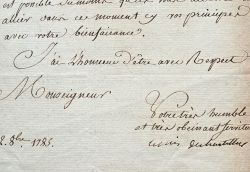 est possible
allier dans ce moment cy vos principes
avec votre bienfaisance.
J'ai L'honneur d'être avec Respect
Monseigneur
Votre très humble
et très obeissant servite
8bre 1785.